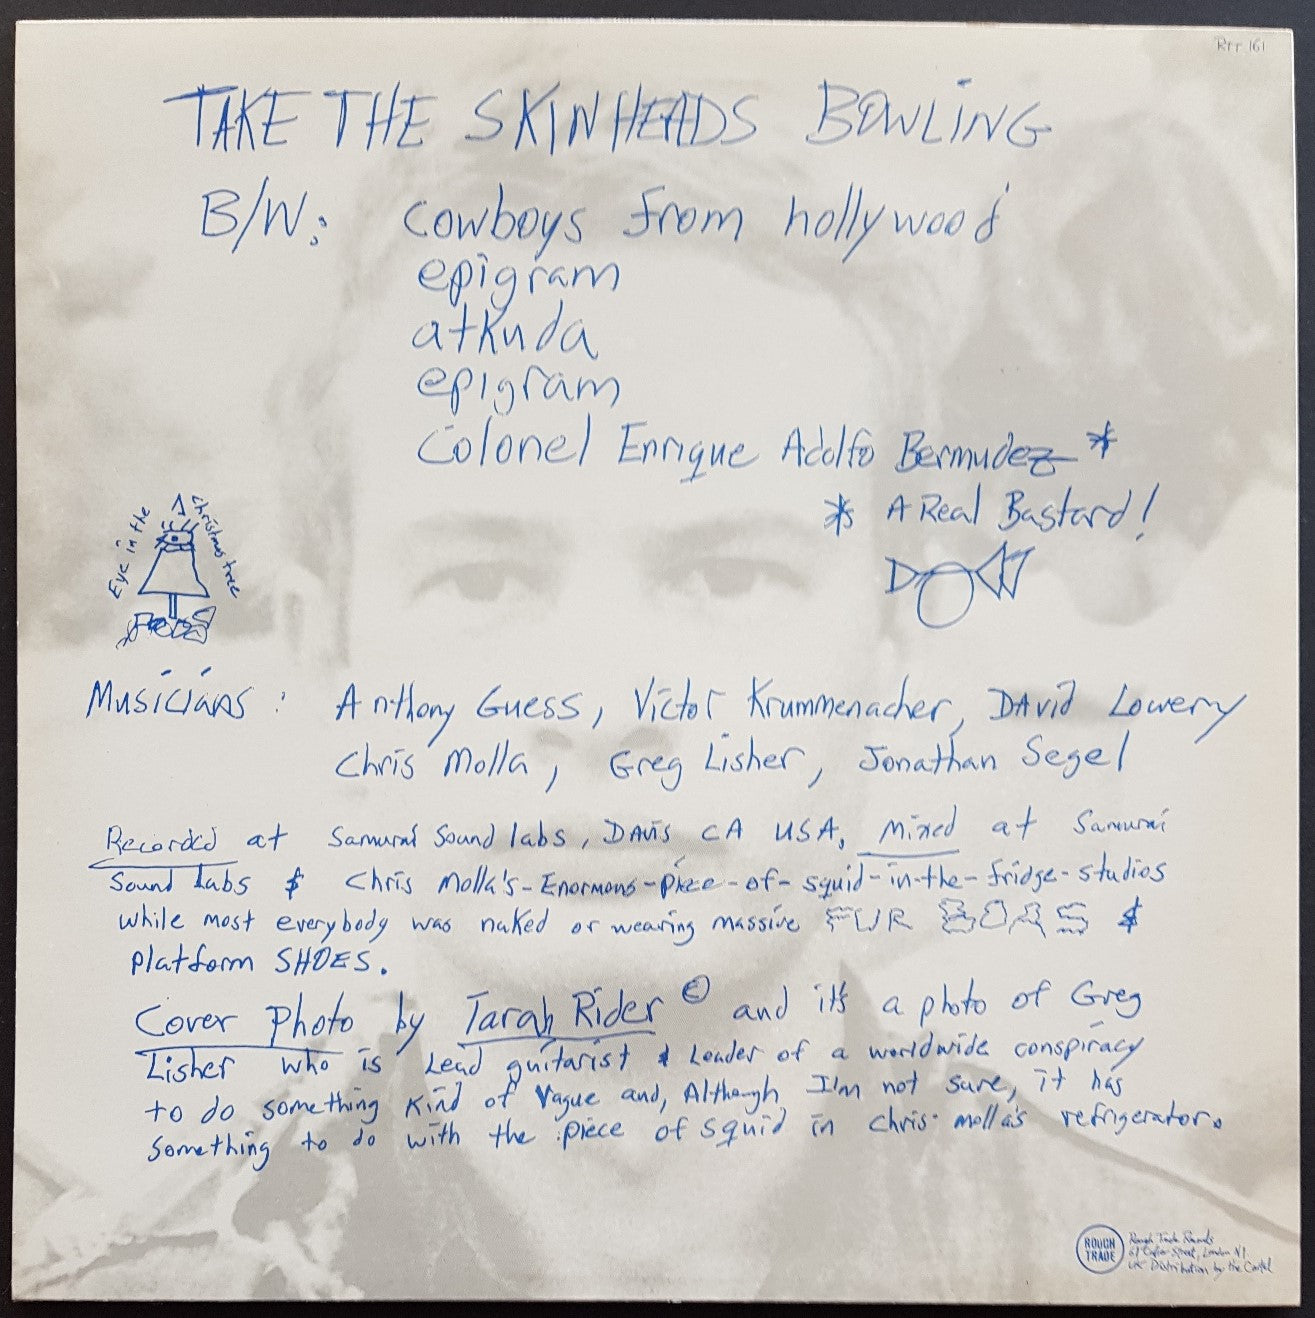 RTT 161
TAKE THE SKINHEADS BOWLING
B/W: cowboys from hollywood
epigram
atkuda
epigram
Colonel Enrique Adolfo Bermudez *
* A Real Bastard!
Eye in the Christmas tree
Musicians: Anthony Guess, Victor Krummenacher, David Lowery
Chris Molla, Greg Lisher, Jonathan Segel
Recorded at Samurai Sound labs, Davis CA USA, Mixed at Samurai
Sound labs & Chris Molla's-Enormous-piece-of-squid-in-the-fridge-studios
while most everybody was naked or wearing massive FUR BOAS &
platform SHOES.
Cover Photo by Tarah Rider © and it's a photo of Greg
Lisher who is Lead guitarist & Leader of a worldwide conspiracy
to do something kind of vague and, Although I'm not sure, it has
something to do with the piece of squid in chris molla's refrigerator.
ROUGH TRADE
Rough Trade Records
61 Collier Street, London N1.
UK Distribution by the Cartel